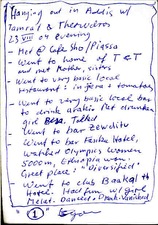 Hanging out in Addis w/
Tamrat & Thewodros
23 VIII 04 evening
- Met @ Cafe Sho/Piassa
- Went to home of T & T
and met Mother, sisters
- Went to very basic local
restaurant: injera + tomatoes
- Went to very basic local bar
to drink arakis. Met drunken
girl Talked
- Went to bar Zewditu
- Went to bar Fasika Hotel,
Watched Olympics Women
5000m, Ethiopia won
Great place: "Diversified"
- Went to club Baakal
Hotel. Had fun w/ girls
Melat. Danced - Drank - Vanished
1